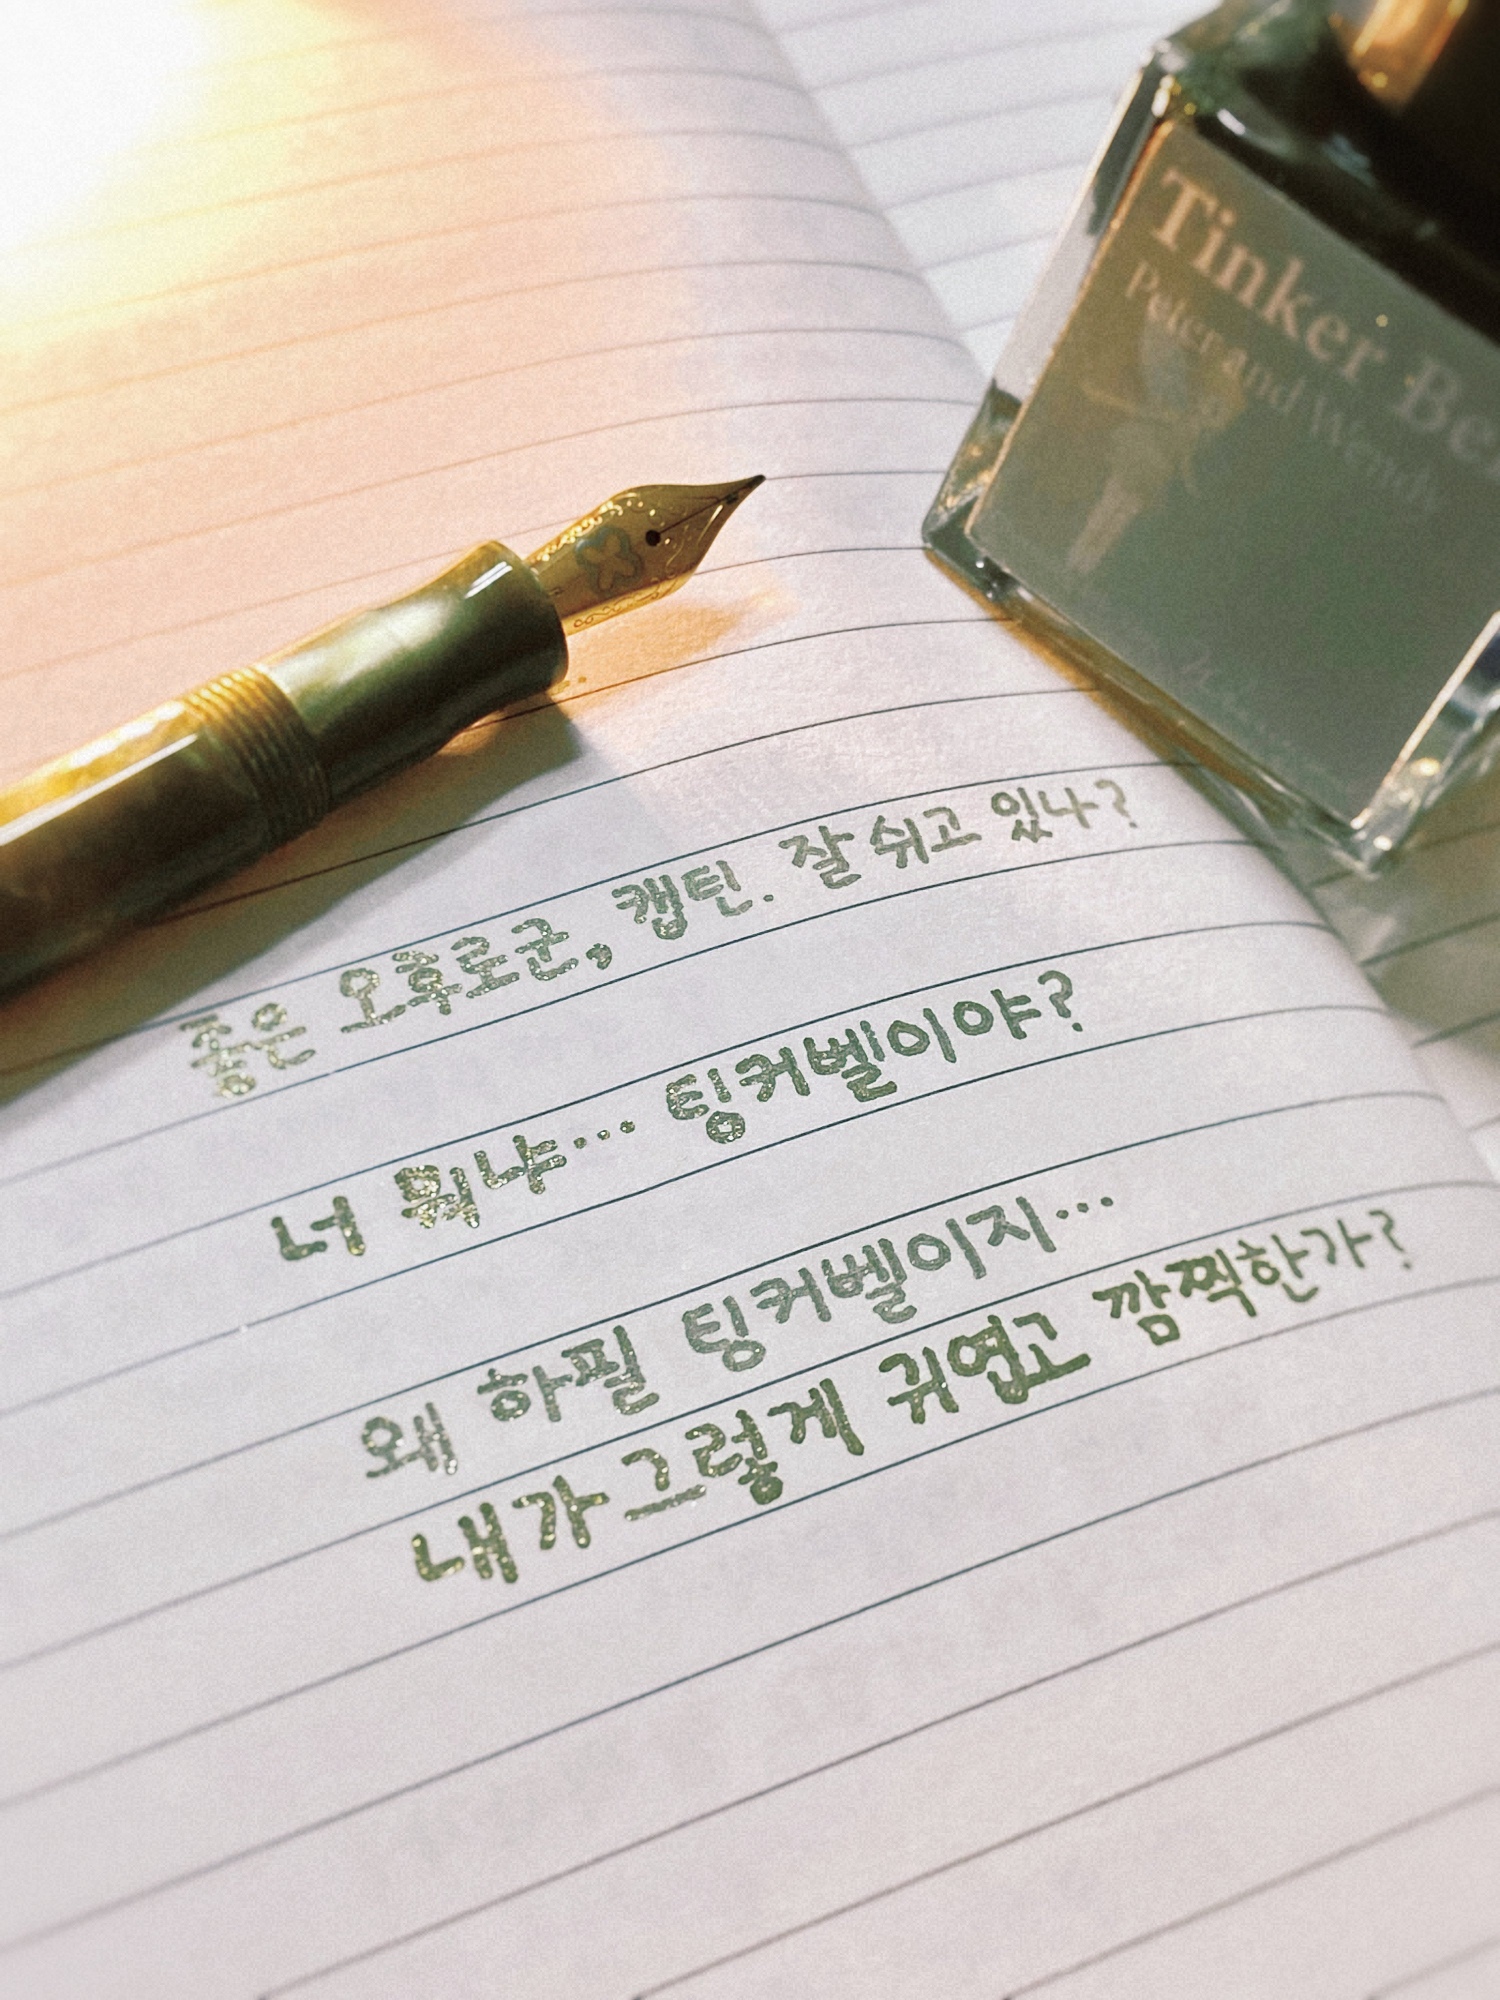 Tinker Be
Peter and Wendy
좋은 오후로군, 캡틴. 잘 쉬고 있나?
너 뭐냐... 팅커벨이야?
왜 하필 팅커벨이지...
내가 그렇게 귀엽고 깜찍한가?